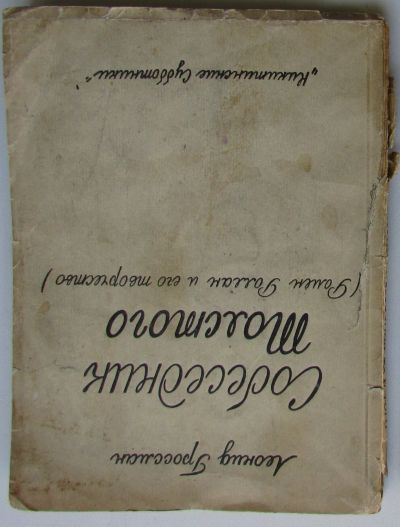 Леонид Гроссман
Собеседник
Толстого
(Ромен Роллан и его творчество)
„Никитинские Субботники“